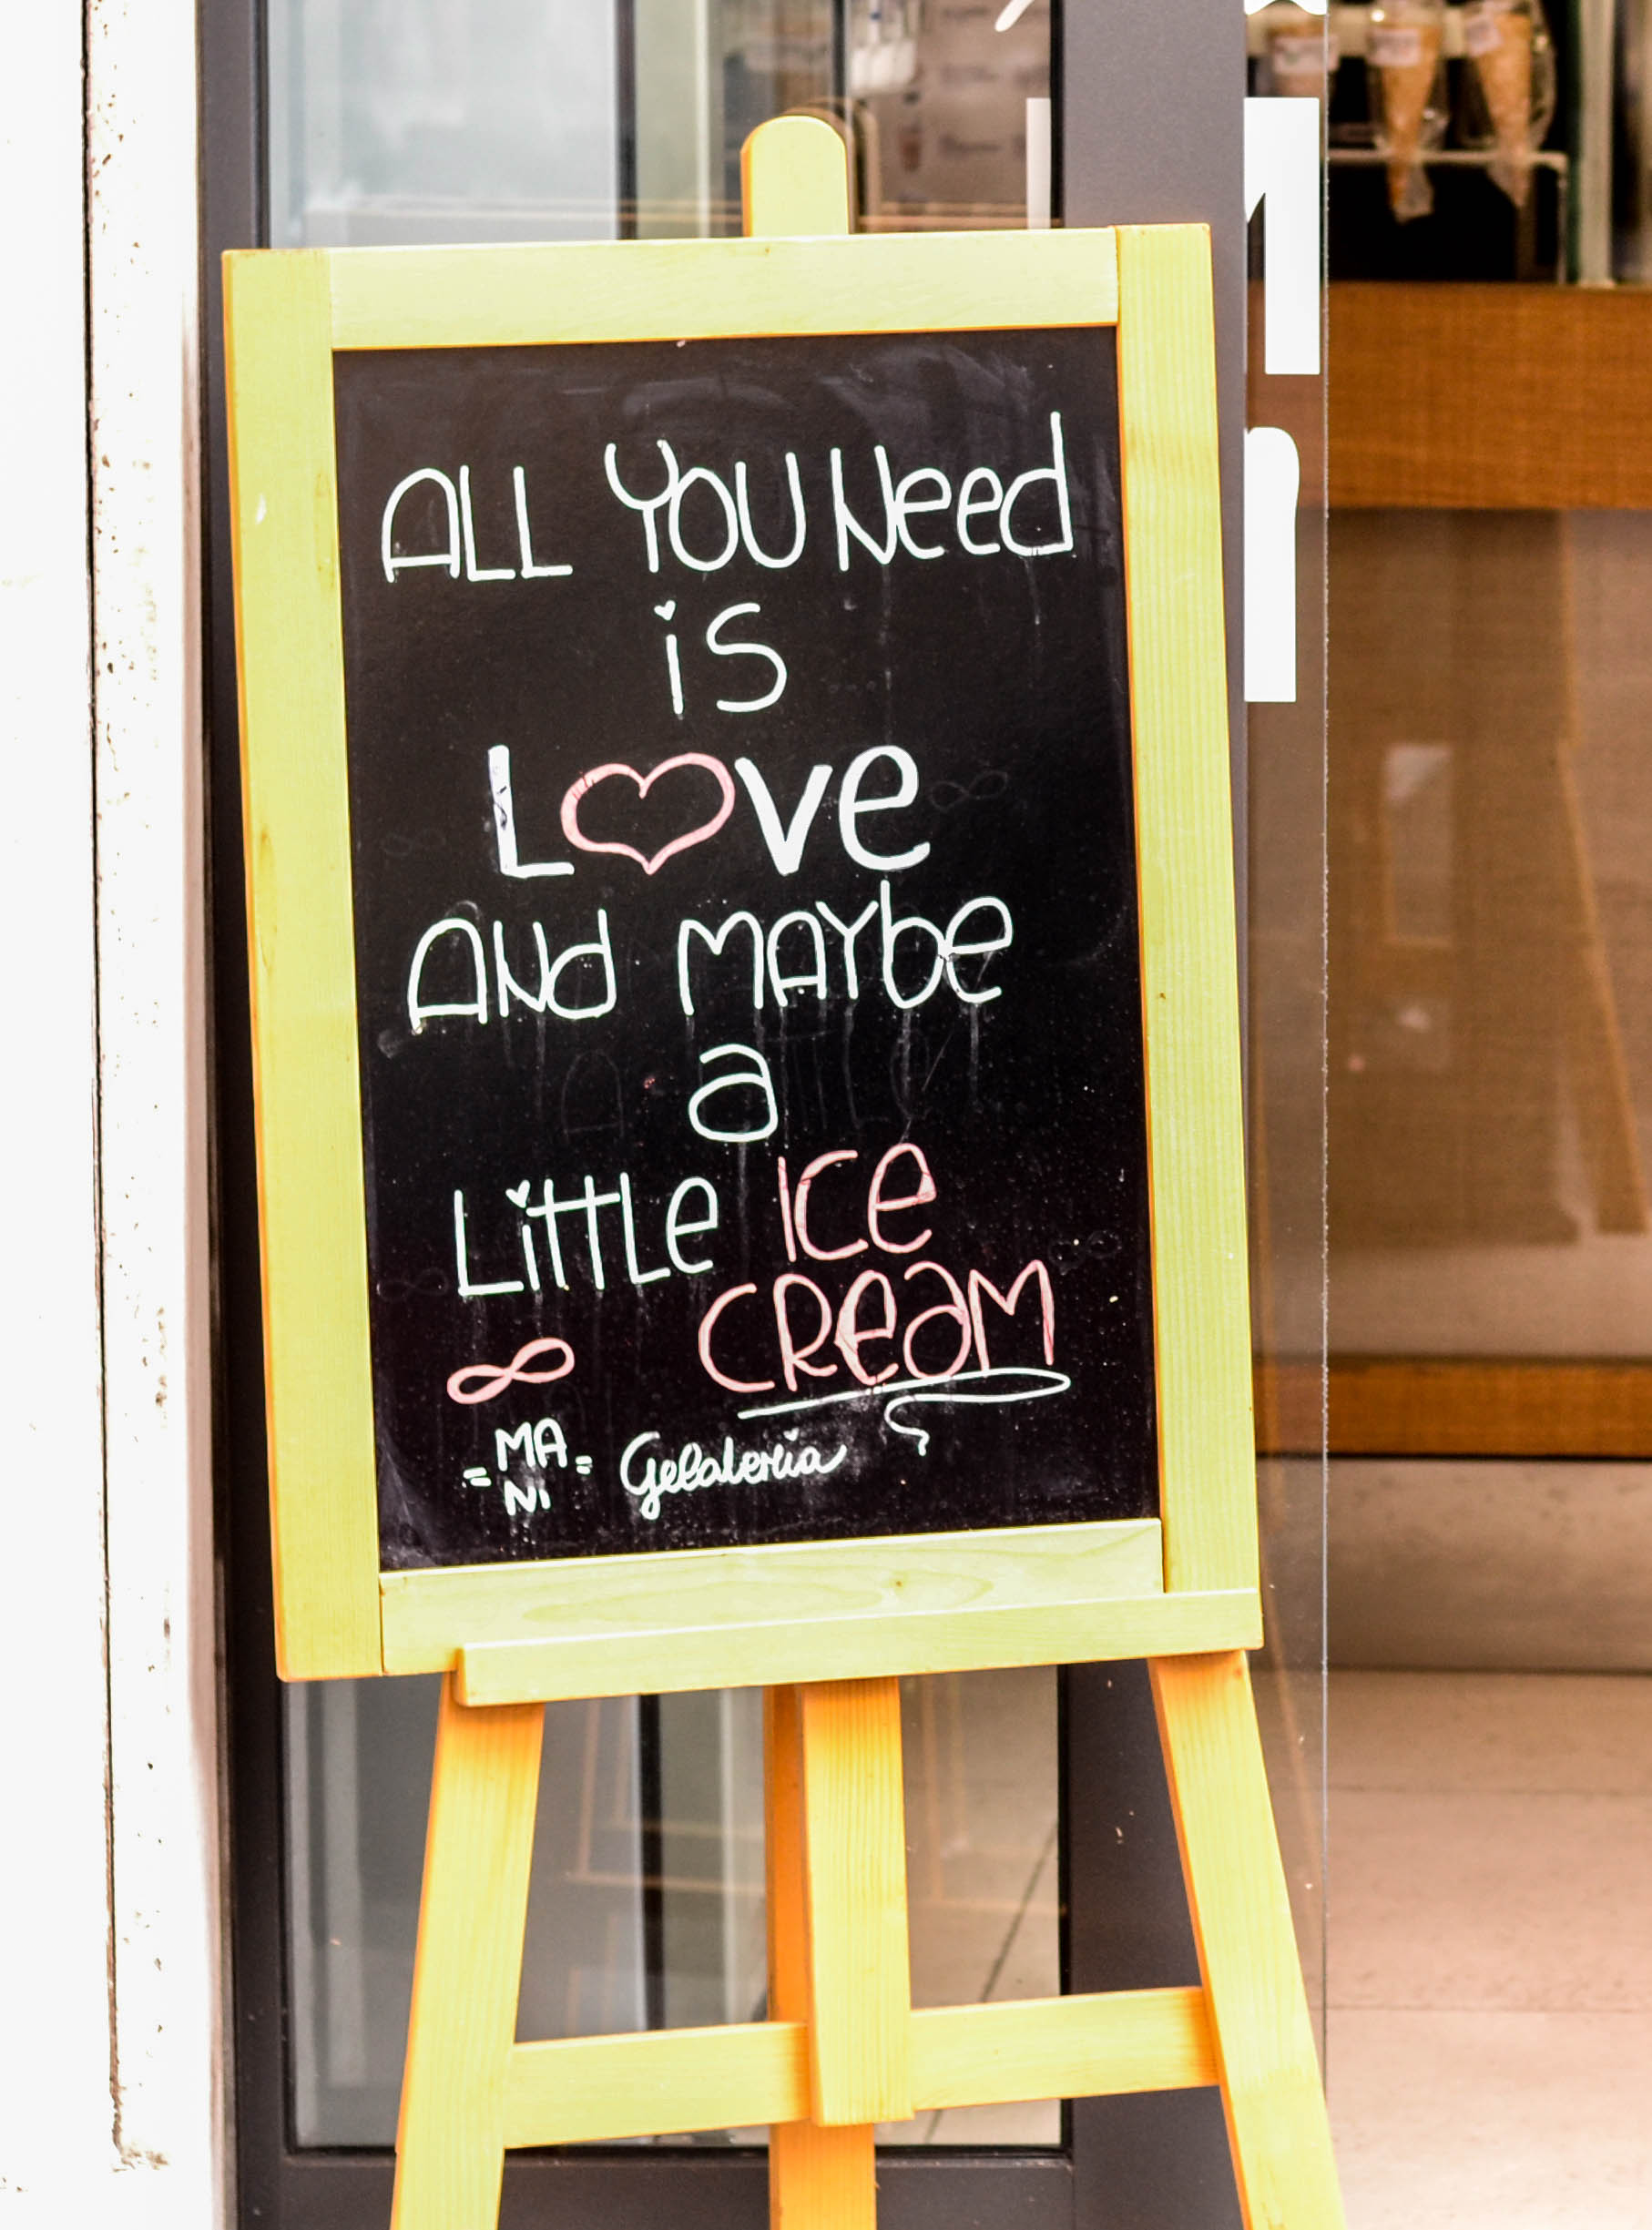 ALL YOU Need
is
Love
AND MAYbe
a
LittLe ICe
CReaM
= MA =
Ni
Gelateria